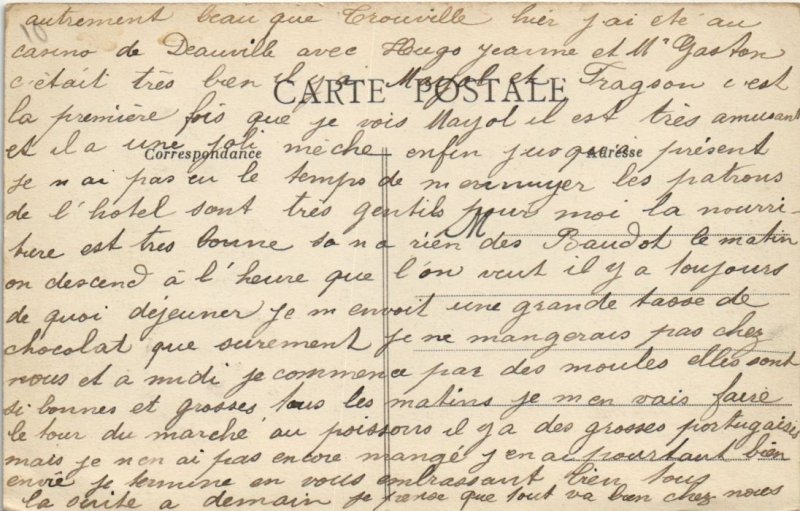 10
autrement beau que Trouville hier j'ai ete au
casino de Deauville avec Hugo Jeanne et Mr Gaston
c'était très bien il y a Mayol et Fragson c'est
CARTE POSTALE
la première fois que je vois Mayol il est très amusant
et il a une joli mèche enfin jusqu'ai présent
Correspondance
Adresse
je n ai pas eu le temps de m ennuyer les patrons
de l'hotel sont très gentils pour moi la nourri-
M
ture est tres bonne sa n a rien des Baudot le matin
on descend à l'heure que l'on veut il y a toujours
de quoi déjeuner je m envoit une grande tasse de
chocolat que surement je ne mangerais pas chez
nous et a midi je commence par des moules elles sont
si bonnes et grosses tous les matins je m en vais faire
le tour du marché au poissons il y a des grosses portugaises
mais je n en ai pas encore mangé j en ai pourtant bien
envie je termine en vous embrassant bien tous
la suite a demain je pense que tout va bien chez nous